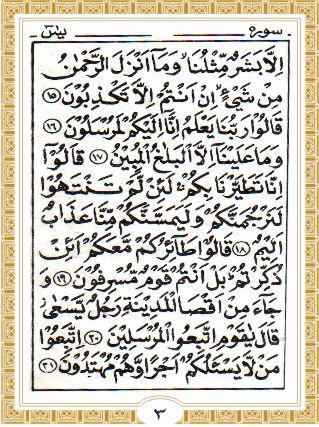 سورة يس
اِلَّا بَشَرٌ مِّثْلُنَا وَمَآ اَنْزَلَ الرَّحْمٰنُ
مِنْ شَیْءٍ اِنْ اَنْتُمْ اِلَّا تَكْذِبُوْنَ ﴿۱۵﴾
قَالُوْا رَبُّنَا یَعْلَمُ اِنَّاۤ اِلَیْكُمْ لَمُرْسَلُوْنَ ﴿۱۶﴾
وَمَا عَلَیْنَاۤ اِلَّا الْبَلٰغُ الْمُبِیْنُ ﴿۱۷﴾ قَالُوْۤا
اِنَّا تَطَیَّرْنَا بِكُمْ لَئِنْ لَّمْ تَنْتَهُوْا
لَنَرْجُمَنَّكُمْ وَلَیَمَسَّنَّكُمْ مِّنَّا عَذَابٌ
اَلِیْمٌ ﴿۱۸﴾ قَالُوْا طَآئِرُكُمْ مَّعَكُمْ اَئِنْ
ذُكِّرْتُمْ بَلْ اَنْتُمْ قَوْمٌ مُّسْرِفُوْنَ ﴿۱۹﴾ وَ
جَآءَ مِنْ اَقْصَا الْمَدِیْنَةِ رَجُلٌ یَّسْعٰی
قَالَ یٰقَوْمِ اتَّبِعُوا الْمُرْسَلِیْنَ ﴿۲۰﴾ اتَّبِعُوْا
مَنْ لَّا یَسْـَٔلُكُمْ اَجْرًا وَّهُمْ مُّهْتَدُوْنَ ﴿۲۱﴾
۳